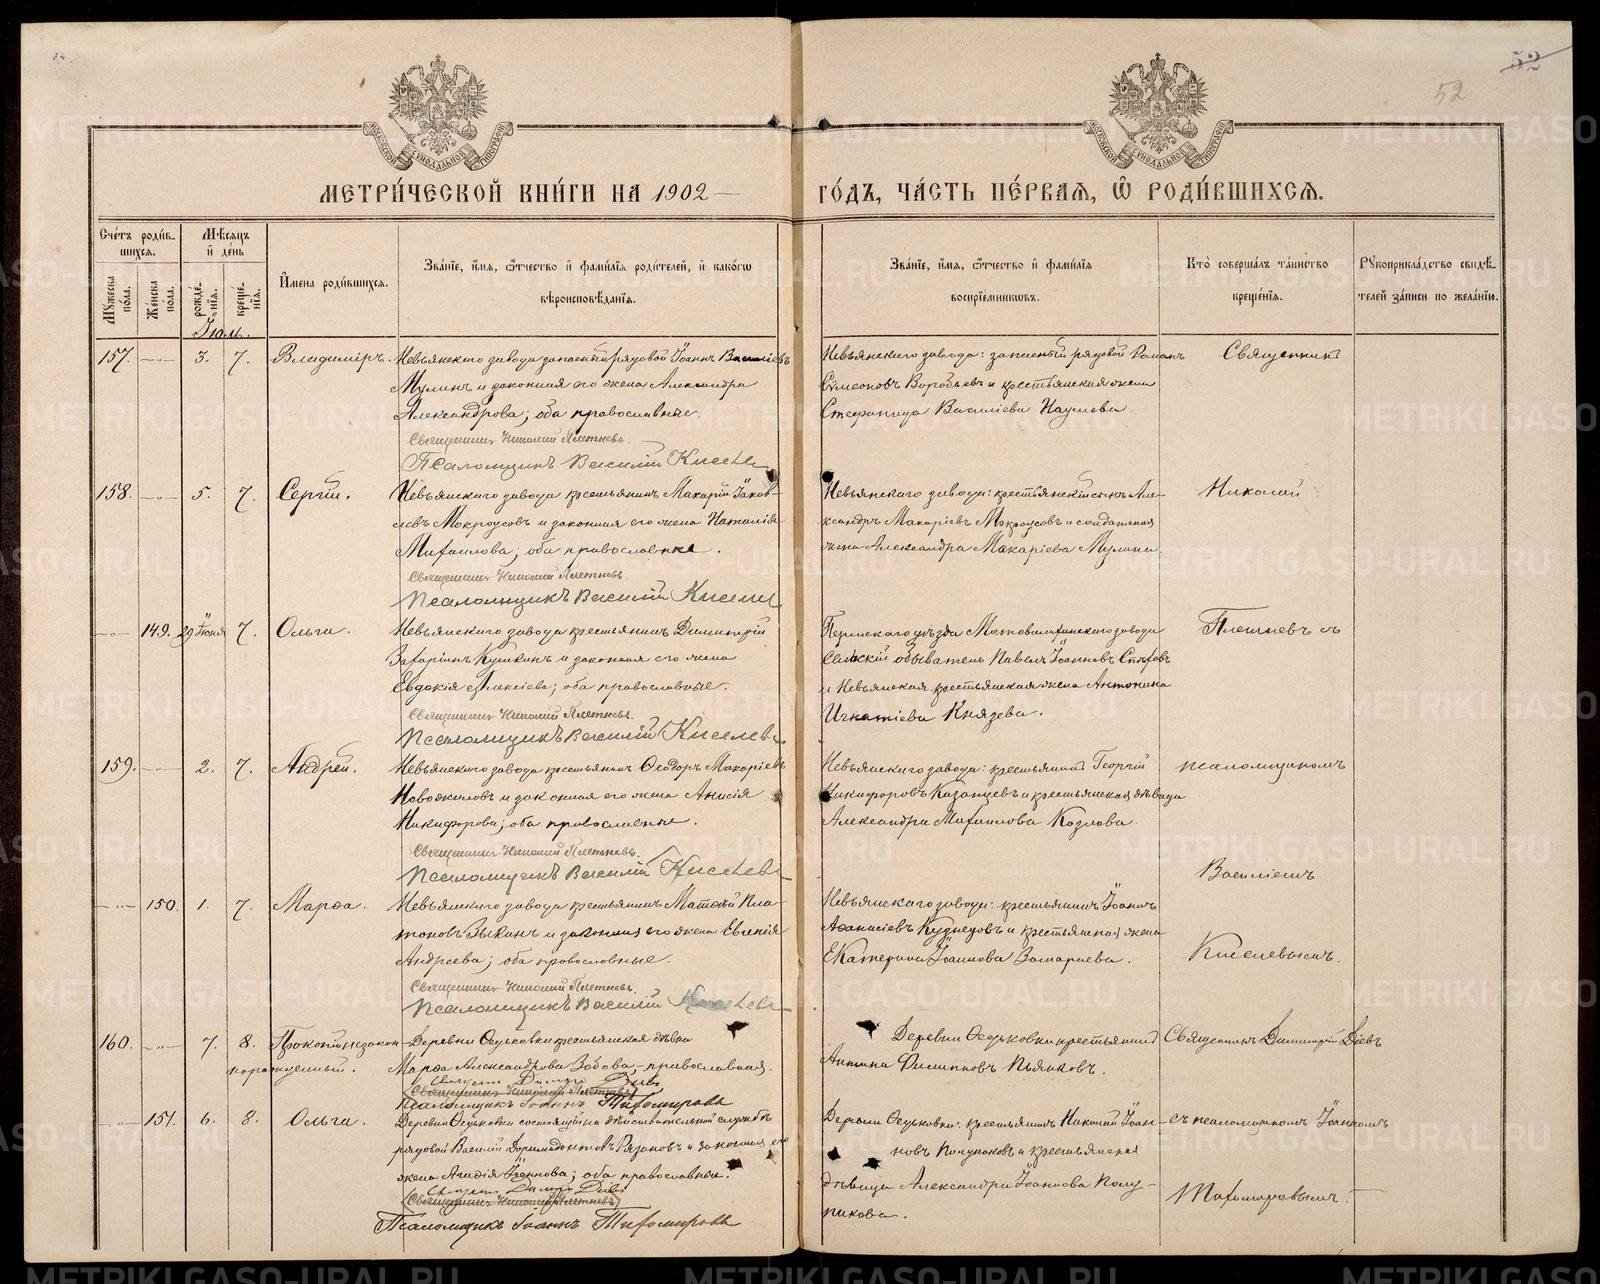 52
52
МОСКОВСКОЙ СѴНОДАЛЬНОЙ ТИПОГРАФІИ
МОСКОВСКОЙ СѴНОДАЛЬНОЙ ТИПОГРАФІИ
МЕТРИ́ЧЕСКОЙ КНИ́ГИ НА 1902 —
ГО́ДЪ, ЧА́СТЬ ПЕ́РВАѦ, Ѡ҆ РОДИ́ВШИХСѦ.
Сче́тъ роди́в-
шихсѧ.
Мꙋ́жеска по́ла.
Же́нска по́ла.
Мѣ́сѧцъ
и҆ де́нь
рожде́-
нїѧ.
креще́-
нїѧ.
И҆мена роди́вшихсѧ.
Зва́нїе, и҆́мѧ, ѻ҆́тчество и҆ фами́лїѧ роди́телей, и҆ како́гѡ
вѣроисповѣ́данїѧ.
Зва́нїе, и҆́мѧ, ѻ҆́тчество и҆ фами́лїѧ
воспрїе́мникѡвъ.
Кто̀ соверша́лъ та́инство
креще́нїѧ.
Рꙋкоприкла́дство свидѣ́-
телей за́писи по жела́нїю.
Іюль.
157. —„— 3. 7. Владиміръ.
Невьянскаго завода запасный рядовой Іоаннъ Васильевъ
Мулинъ и законная его жена Александра
Александрова; оба православные.
Священникъ Николай Плетневъ.
Псаломщикъ Василій Киселевъ
Невьянскаго завода: запасный рядовой Романъ
Сѵмеоновъ Воробьевъ и крестьянская жена
Стефанида Василіева Наумова.
Священникъ
158. —„— 5. 7. Сергій.
Невьянскаго завода крестьянинъ Макарій Іаков-
левъ Мокроусовъ и законная его жена Наталія
Михаилова; оба православные.
Священникъ Николай Плетневъ.
Псаломщикъ Василій Киселев
Невьянскаго завода: крестьянскій сынъ Але-
ксандръ Макаріевъ Мокроусовъ и солдатская
жена Александра Макаріева Мулина.
Николай
—„— 149. 29 Іюня 7. Ольга.
Невьянскаго завода крестьянинъ Димитрій
Захаріинъ Кушкинъ и законная его жена
Евдокія Алексіева; оба православные.
Священникъ Николай Плетневъ.
Псаломщикъ Василій Киселевъ
Пермскаго уѣзда Мотовилихинскаго завода
Сельскій обыватель Павелъ Іоанновъ
и Невьянская крестьянская жена Антонина
Игнатіева Князева.
Плетневъ съ
159. —„— 2. 7. Андрей.
Невьянскаго завода крестьянинъ Ѳеодоръ Макаріевъ
Новожиловъ и законная его жена Анисія
Никифорова; оба православные.
Священникъ Николай Плетневъ.
Псаломщикъ Василій Киселевъ
Невьянскаго завода: крестьянинъ Георгій
Никифоровъ Казанцевъ и крестьянская дѣвица
Александра Михаилова Козлова.
псаломщикомъ
Василіемъ
—„— 150. 1. 7. Марѳа.
Невьянскаго завода крестьянинъ Матѳей Пла-
тоновъ Зыкинъ и законная его жена Евгенія
Андреева; оба православные.
Священникъ Николай Плетневъ.
Псаломщикъ Василій Киселевъ
Невьянскаго завода: крестьянинъ Іоаннъ
Аѳанасіевъ Кузнецовъ и крестьянская жена
Екатерина Іоаннова Замараева.
Киселевымъ.
160. —„— 7. 8. Прокопій незакон-
норожденный.
Деревни Ѳедьковки крестьянская дѣвка
Марѳа Александрова Зобова, православная.
Священ. Димитр. Діевъ
Священникъ Николай Плетневъ
Псаломщикъ Іоаннъ Тихомировъ
Деревни Ѳедьковки крестьянинъ
Антипа Филипповъ Пьянковъ.
Священникъ Димитрій Діевъ
—„— 151. 6. 8. Ольга.
Деревни Ѳедьковки состоящій на дѣйствительной службѣ
рядовой Василій Доримедонтовъ Рязановъ и законная его
жена Агафія; оба православные.
Священ. Димитр. Діевъ
Священникъ Николай Плетневъ
Псаломщикъ Іоаннъ Тихомировъ
Деревни Ѳедьковки: крестьянинъ Николай Іоан-
новъ Полупановъ и крестьянская
дѣвица Александра Іоаннова Полу-
панова.
съ псаломщикомъ Іоанномъ
Тихомировымъ.
METRIKI.GASO-URAL.RU